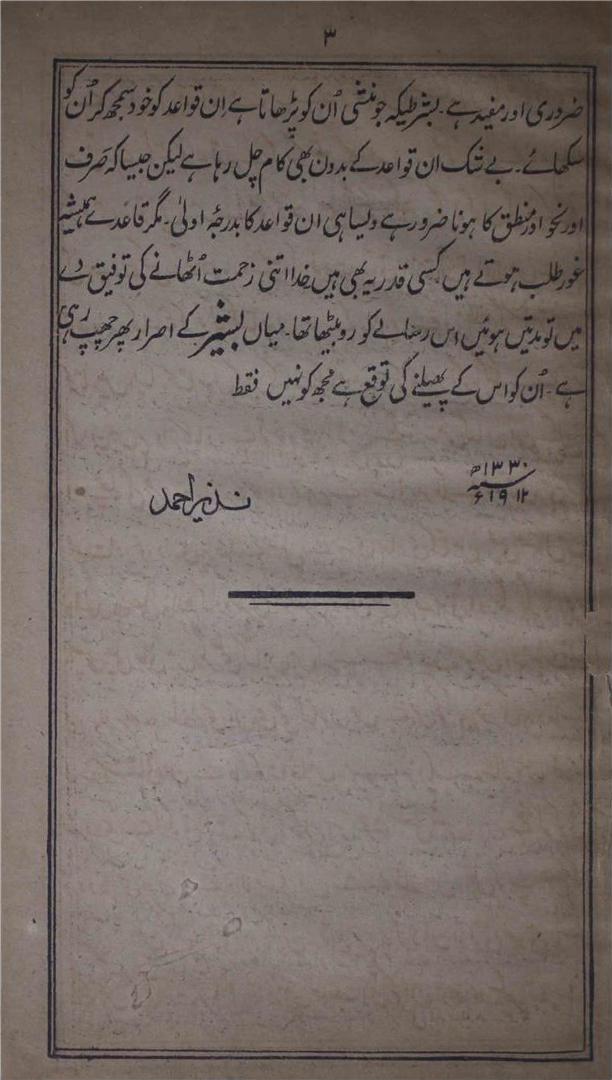 ۳
ضروری اور مفید ہے۔ بشرطیکہ جو منشی اُن کو پڑھاتا ہے اِن قواعد کو خود سمجھ کر اُن کو
سکھائے۔ بے شک ان قواعد کے بدون بھی کام چل رہا ہے لیکن جیسا کہ صَرف
اور نحو اور منطق کا ہونا ضرور ہے ویسا ہی ان قواعد کا بدرجۂ اولیٰ۔ مگر قاعدے ہمیشہ
غور طلب ہوتے ہیں کسی قدر یہ بھی ہیں خدا اتنی زحمت اُٹھانے کی توفیق دے
میں تو مدتیں ہوئیں اس رسالے کو رو بیٹھا تھا۔ میاں بشیر کے اصرار پھر چھپ رہی
ہے۔ اُن کو اس کے پھیلنے کی توقع ہے مجھ کو نہیں فقط
۱۳۳۰ھ
سنہ
۱۹۱۲ء
نذیر احمد